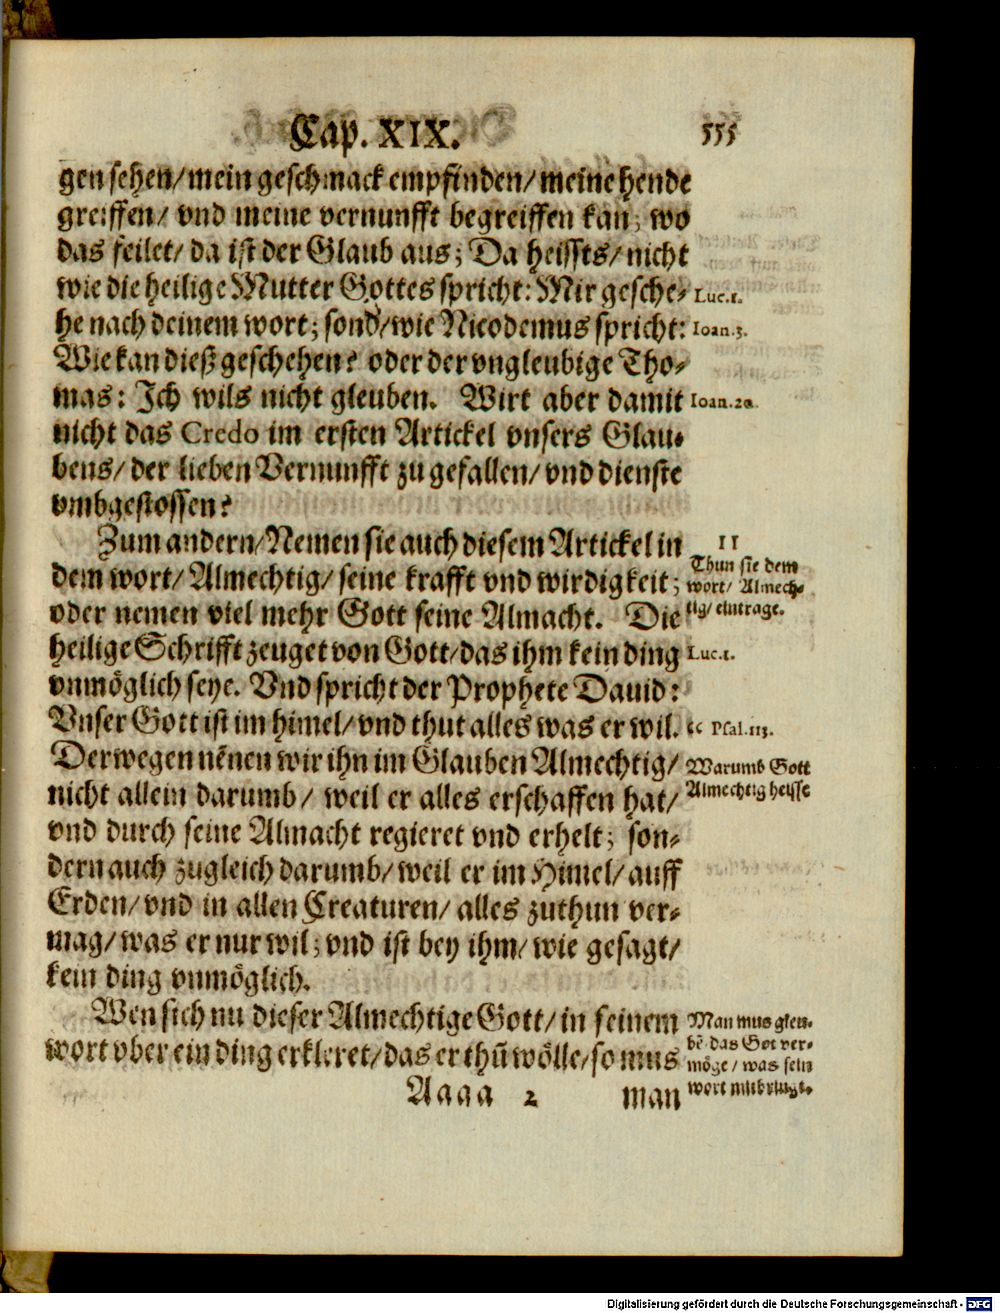 Cap. XIX. 555
gen sehen/ mein geschmack empfinden/ meine hende
greiffen/ vnd meine vernunfft begreiffen kan; wo
das feilet/ da ist der Glaub aus; Da heissts/ nicht
wie die heilige Mutter Gottes spricht: Mir gesche- Luc.1.
he nach deinem wort; sond'/ wie Nicodemus spricht: Ioan.3.
Wie kan dieß geschehen? oder der vngleubige Tho-
mas: Ich wils nicht gleuben. Wirt aber damit Ioan.20.
nicht das Credo im ersten Artickel vnsers Glau-
bens/ der lieben Vernunfft zu gefallen/ vnd dienste
vmbgestossen?
Zum andern/ Nemen sie auch diesem Artickel in
dem wort/ Almechtig/ seine krafft vnd wirdigkeit;
oder nemen viel mehr Gott seine Almacht. Die
11
Thun sie dem
wort/ Almech-
tig/ eintrage.
heilige Schrifft zeuget von Gott/ das ihm kein ding Luc.1.
vnmöglich seye. Vnd spricht der Prophete Dauid:
Vnser Gott ist im himel/ vnd thut alles was er wil. “ Psal.113.
Derwegen nēnen wir ihn im Glauben Almechtig/
nicht allein darumb/ weil er alles erschaffen hat/
Warumb Gott
Almechtig heisse
vnd durch seine Almacht regieret vnd erhelt; son-
dern auch zugleich darumb/ weil er im Himel/ auff
Erden/ vnd in allen Creaturen/ alles zuthun ver-
mag/ was er nur wil; vnd ist bey ihm/ wie gesagt/
kein ding vnmöglich.
Wen sich nu dieser Almechtige Gott/ in seinem
wort vber ein ding erkleret/ das er thū wölle/ so mus
Man mus gleu-
bē das Got ver-
möge/ was sein
wort mitbringt.
Aaaa 2 man
Digitalisierung gefördert durch die Deutsche Forschungsgemeinschaft - DFG